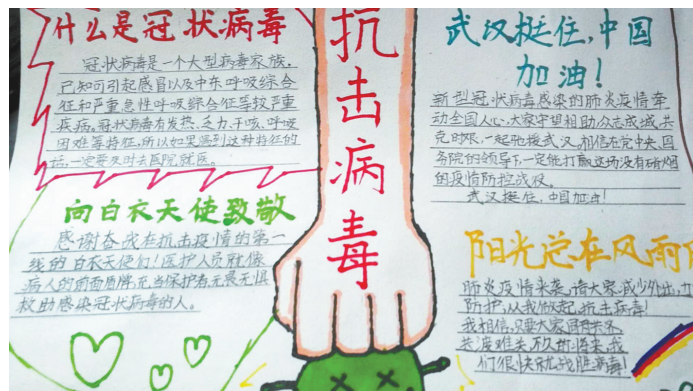 什么是冠状病毒
冠状病毒是一个大型病毒家族,
已知可引起感冒以及中东呼吸综合
征和严重急性呼吸综合征等较严重
疾病。冠状病毒有发热、乏力、干咳、呼吸
困难等特征,所以如果遇到这种特征的
话,一定要及时去医院就医。
向白衣天使致敬
感谢奋战在抗击疫情的第一
线的白衣天使们!医护人员就像
病人的盾牌,充当保护者,无畏无惧
救助感染冠状病毒的人。
抗击病毒
武汉挺住,中国
加油!
新型冠状病毒感染的肺炎疫情牵
动全国人心,大家守望相助,众志成城,共
克时艰,一起驰援武汉,相信在党中央、国
务院的领导下,一定能打赢这场没有硝烟
的疫情防控战役。
武汉挺住,中国加油!
阳光总在风雨
肺炎疫情来袭,请大家减少外出,
防护,从我做起,抗击病毒!
我相信,只要大家
共渡难关,
们很快就战胜病毒!